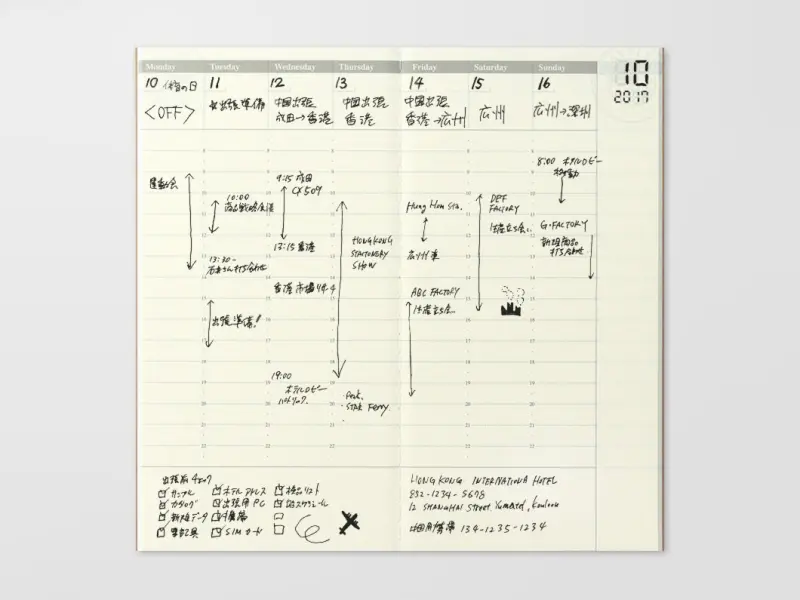 Monday
Tuesday
Wednesday
Thursday
Friday
Saturday
Sunday
10
2017
10 体育の日
11
12
13
14
15
16
<OFF>
出張準備
中国出張
成田→香港
中国出張
香港
中国出張
香港→広州
広州
広州→深圳
運動会
10:00
商品戦略会議
13:30-
打ち合わせ
出張準備!
9:15 成田
CX509
13:15 香港
香港市場リサーチ
19:00
ホテルロビー
HONGKONG
STATIONERY
SHOW
Peak.
STAR Ferry.
Hung Hom Sta.
広州東
ABC FACTORY
生産立ち会い
DEF
FACTORY
生産立ち会い
8:00 ホテルロビー
移動
G-FACTORY
新規商品
打ち合わせ
出張前チェック
サンプル
カタログ
新規データ
筆記具
ホテルアドレス
出張用PC
携帯
SIMカード
検品リスト
スケジュール
HONG KONG INTERNATIONAL HOTEL
852-1234-5678
12 SHANGHAI STREET, Yaumatei, Kowloon
中国用携帯 134-1235-1234